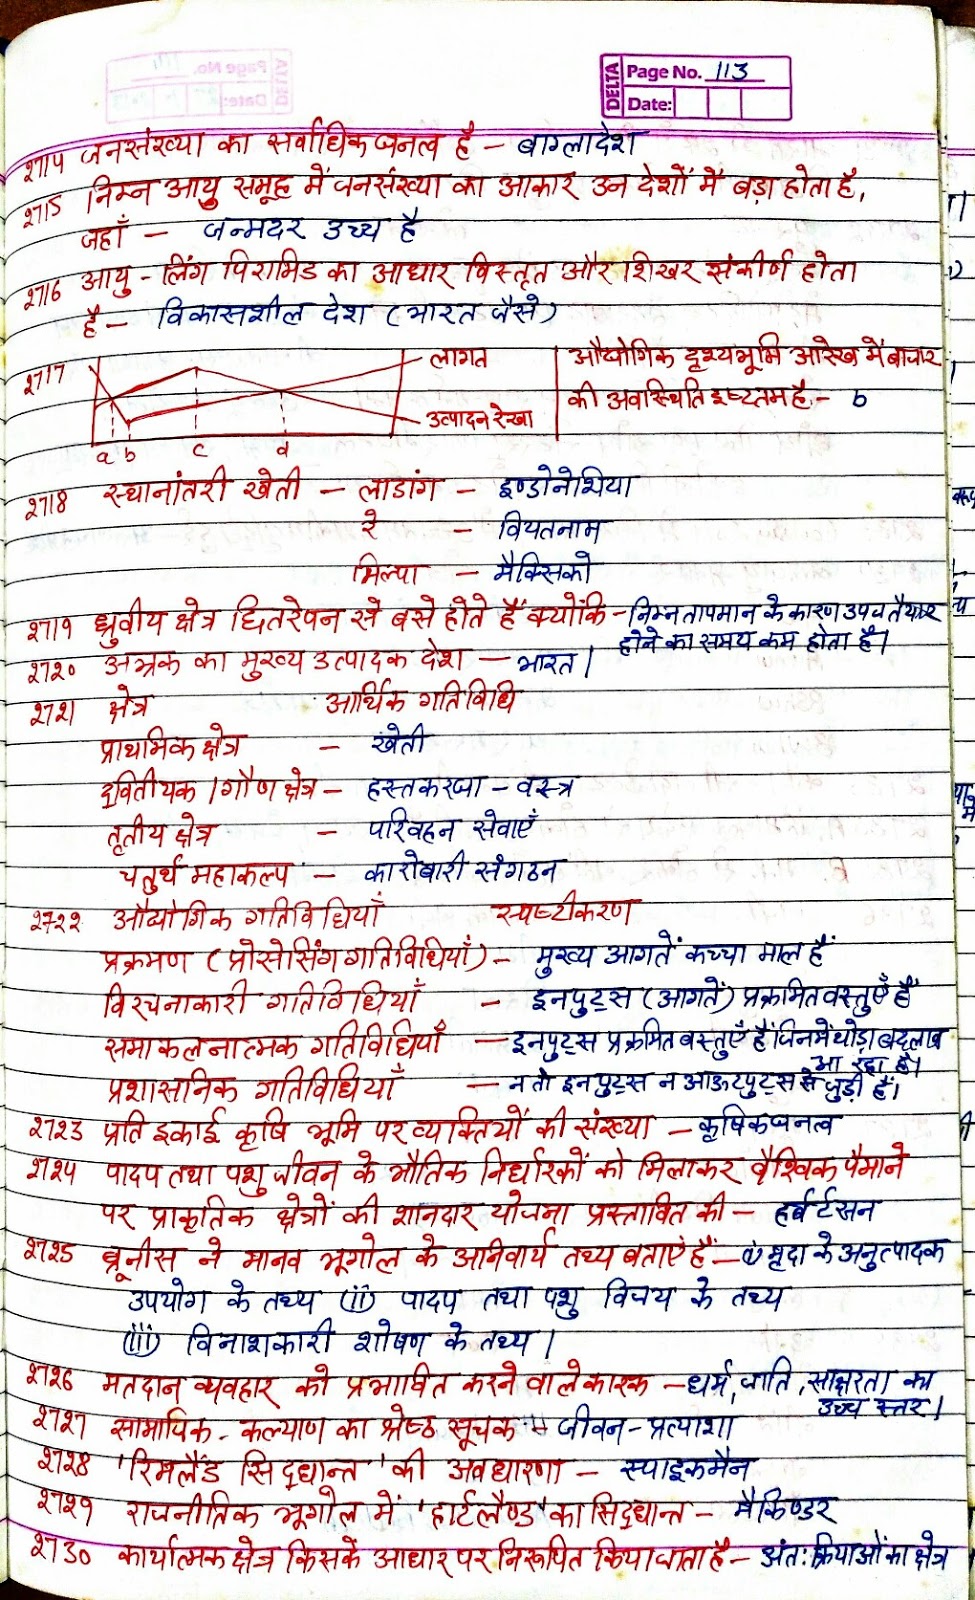 DELTA
Page No. 113
Date:
2714 जनसंख्या का सर्वाधिक घनत्व है - बांग्लादेश
2715 निम्न आयु समूह में जनसंख्या का आकार उन देशों में बड़ा होता है,
जहाँ - जन्मदर उच्च है
2716 आयु - लिंग पिरामिड का आधार विस्तृत और शिखर संकीर्ण होता
है - विकासशील देश (भारत जैसे)
2717 लागत
उत्पादन रेखा
a b c d
औद्योगिक दृश्यभूमि आरेख में बाजार
की अवस्थिति इष्टतम है - b
2718 स्थानांतरी खेती - लाडांग - इण्डोनेशिया
रे - वियतनाम
मिल्पा - मैक्सिको
2719 ध्रुवीय क्षेत्र छितरेपन से बसे होते हैं क्योंकि - निम्न तापमान के कारण उपज तैयार
होने का समय कम होता है।
2720 अभ्रक का मुख्य उत्पादक देश - भारत।
2721 क्षेत्र आर्थिक गतिविधि
प्राथमिक क्षेत्र - खेती
द्वितीयक / गौण क्षेत्र - हस्तकरघा - वस्त्र
तृतीय क्षेत्र - परिवहन सेवाएँ
चतुर्थ महाकल्प - कारोबारी संगठन
2722 औद्योगिक गतिविधियाँ स्पष्टीकरण
प्रक्रमण (प्रोसेसिंग गतिविधियाँ) - मुख्य आगतें कच्चा माल हैं
विरचनाकारी गतिविधियाँ - इनपुट्स (आगतें) प्रक्रमित वस्तुएँ हैं
समाकलनात्मक गतिविधियाँ - इनपुट्स प्रक्रमित वस्तुएँ हैं जिनमें थोड़ा बदलाव
आ रहा है।
प्रशासनिक गतिविधियाँ - न तो इनपुट्स न आऊटपुट्स से जुड़ी हैं।
2723 प्रति इकाई कृषि भूमि पर व्यक्तियों की संख्या - कृषि घनत्व
2724 पादप तथा पशु जीवन के भौतिक निर्धारकों को मिलाकर वैश्विक पैमाने
पर प्राकृतिक क्षेत्रों की शानदार योजना प्रस्तावित की - हर्बर्टसन
2725 ब्रूनीस ने मानव भूगोल के अनिवार्य तथ्य बताएं हैं - (i) मृदा के अनुत्पादक
उपयोग के तथ्य (ii) पादप तथा पशु विजय के तथ्य
(iii) विनाशकारी शोषण के तथ्य।
2726 मतदान व्यवहार को प्रभावित करने वाले कारक - धर्म, जाति, साक्षरता का
उच्च स्तर।
2727 सामाजिक - कल्याण का श्रेष्ठ सूचक - जीवन - प्रत्याशा
2728 'रिमलैंड सिद्धान्त' की अवधारणा - स्पाइकमैन
2729 राजनीतिक भूगोल में 'हार्टलैण्ड' का सिद्धान्त - मैकिण्डर
2730 कार्यात्मक क्षेत्र किसके आधार पर निरूपित किया जाता है - अंतः क्रियाओं का क्षेत्र